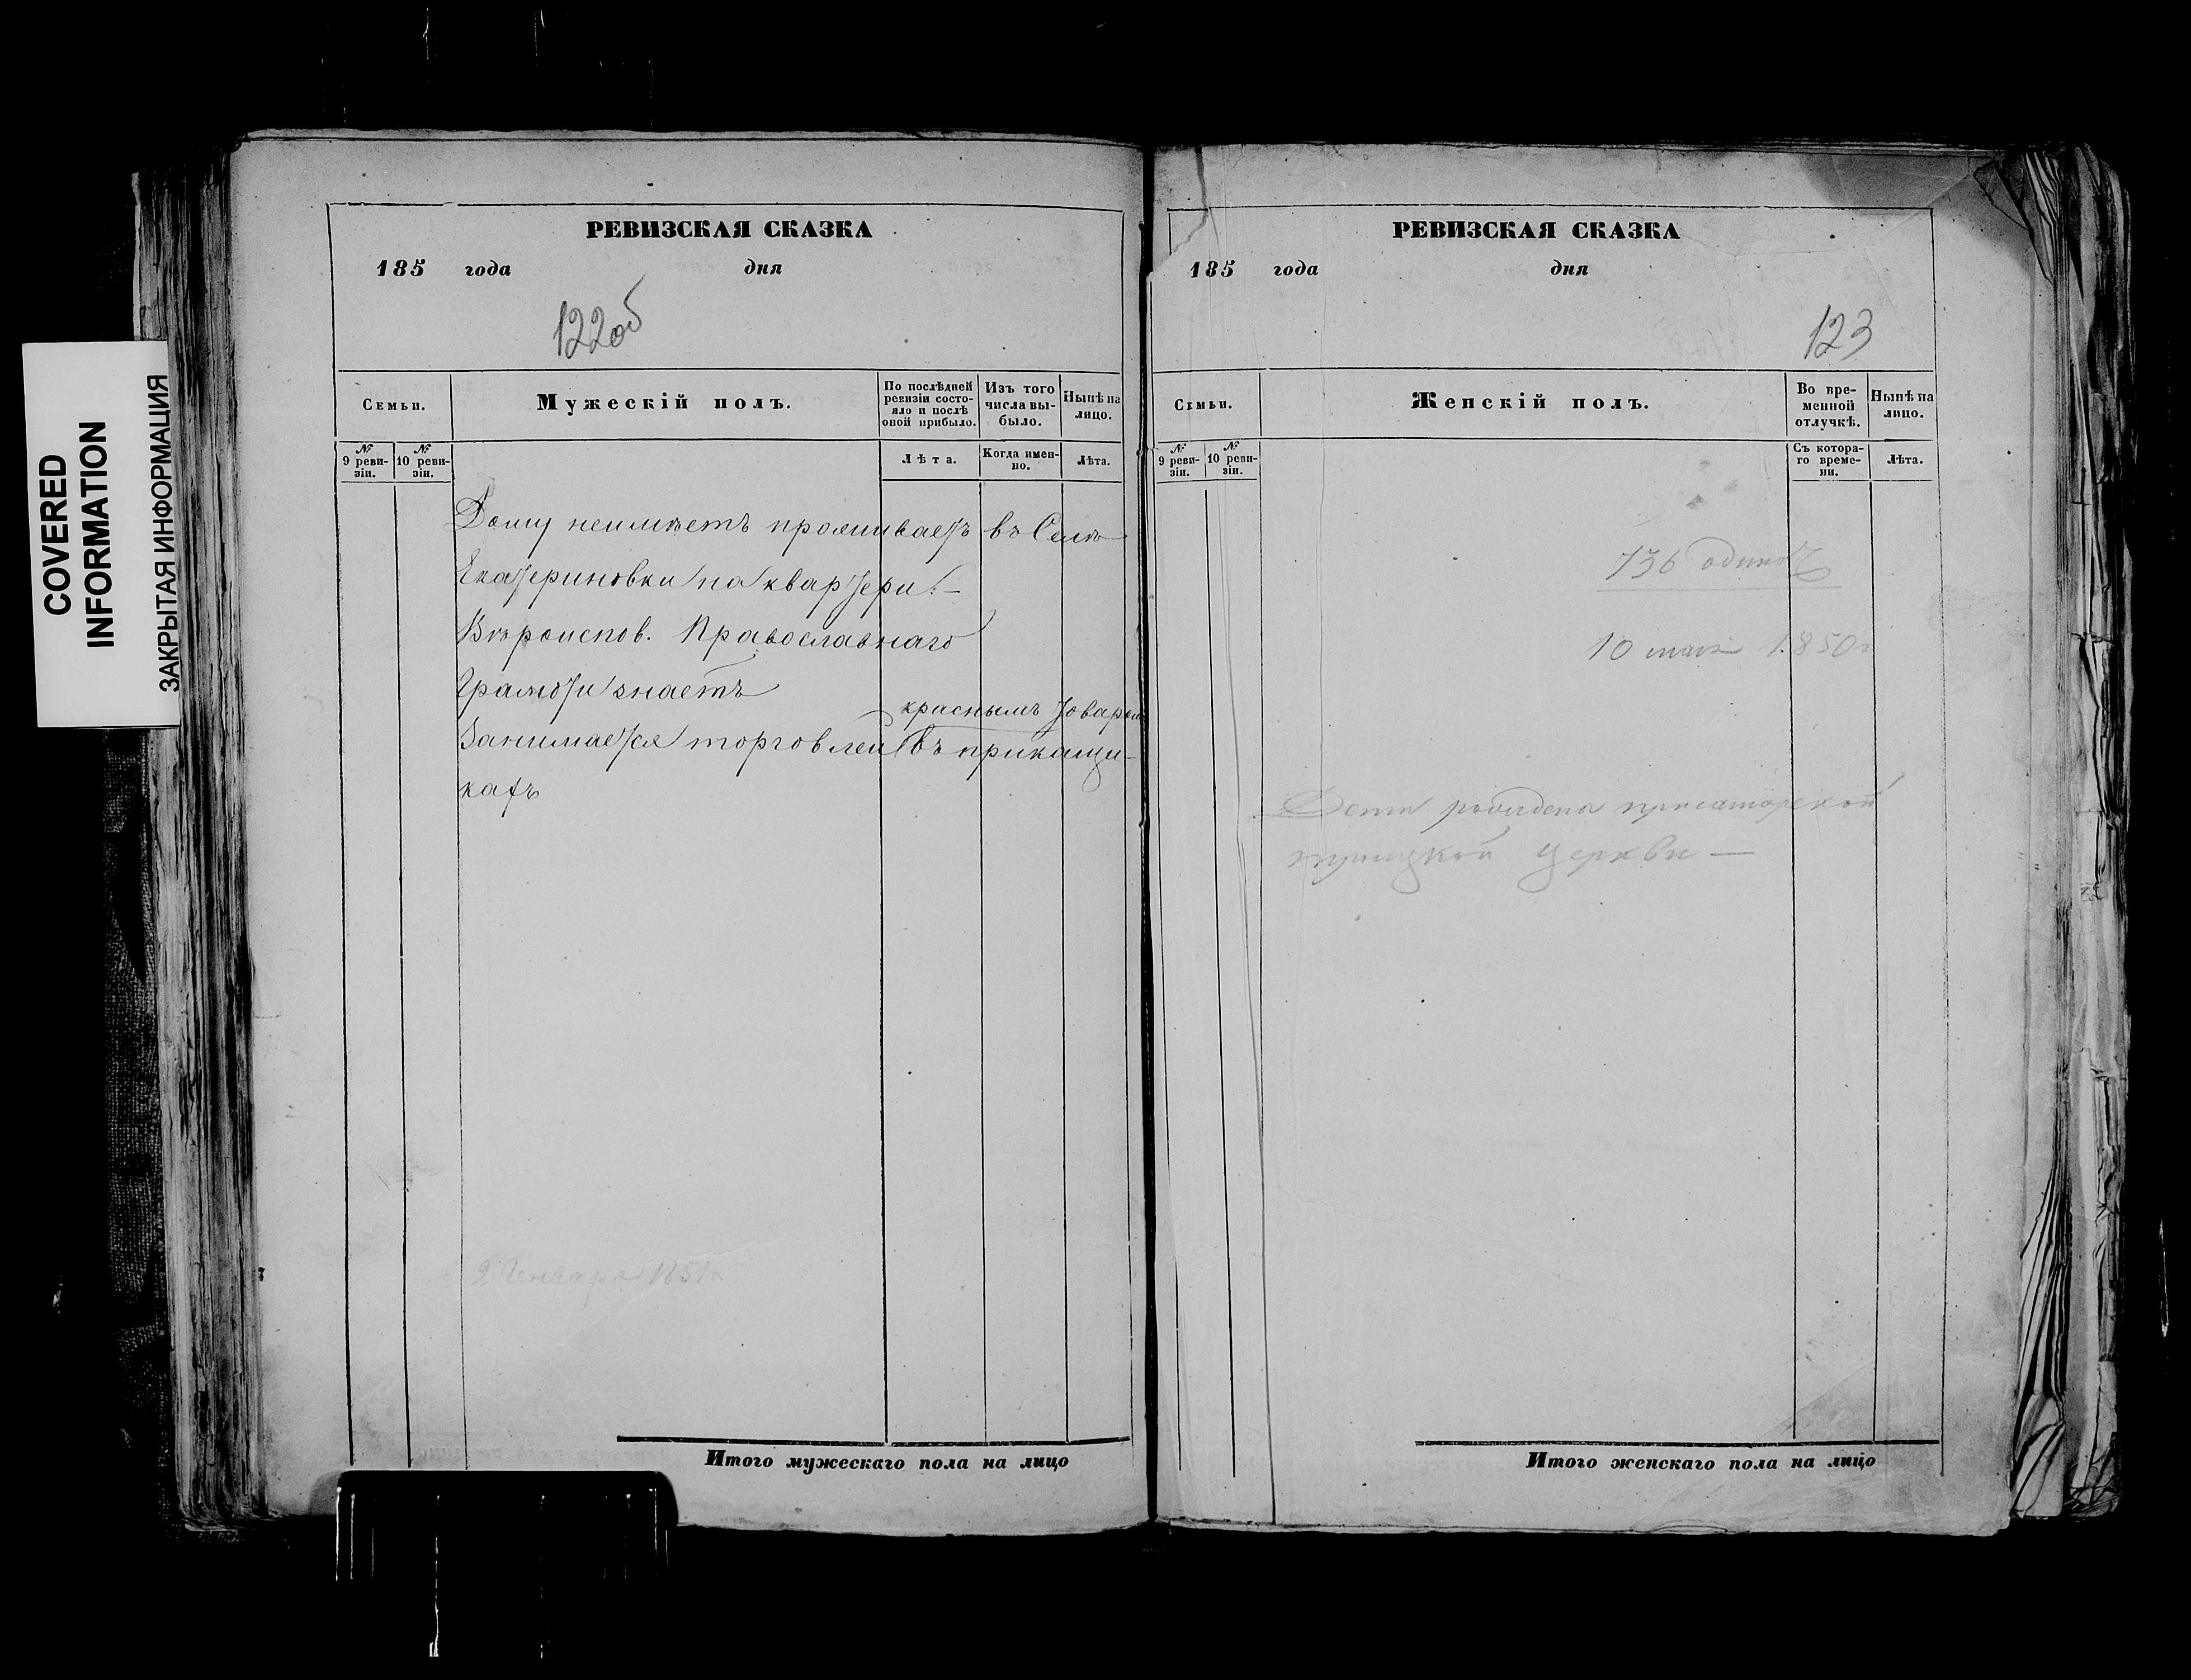 COVERED
INFORMATION
ЗАКРЫТАЯ ИНФОРМАЦИЯ
РЕВИЗСКАЯ СКАЗКА
185 года дня
122об
Семьи.
Мужескій полъ.
По послѣдней
ревизіи состо-
яло и послѣ
оной прибыло.
Изъ того
числа вы-
было.
Нынѣ на
лицо.
№
9 реви-
зіи.
№
10 реви-
зіи.
Лѣта.
Когда имен-
но.
Лѣта.
Дому неимѣетъ проживаетъ въ Селѣ
Екатериновки на квартери. —
Вѣроиспов. Православнаго
Грамоти знаетъ
краснымъ товаром
Занимается торговлей въ прикащи-
кахъ
Генваря 1851г
Итого мужескаго пола на лицо
РЕВИЗСКАЯ СКАЗКА
185 года дня
123
Семьи.
Женскій полъ.
Во вре-
менной
отлучкѣ.
Нынѣ на
лицо.
№
9 реви-
зіи.
№
10 реви-
зіи.
Съ котора-
го време-
ни.
Лѣта.
736
10 1850г
церкви —
Итого женскаго пола на лицо